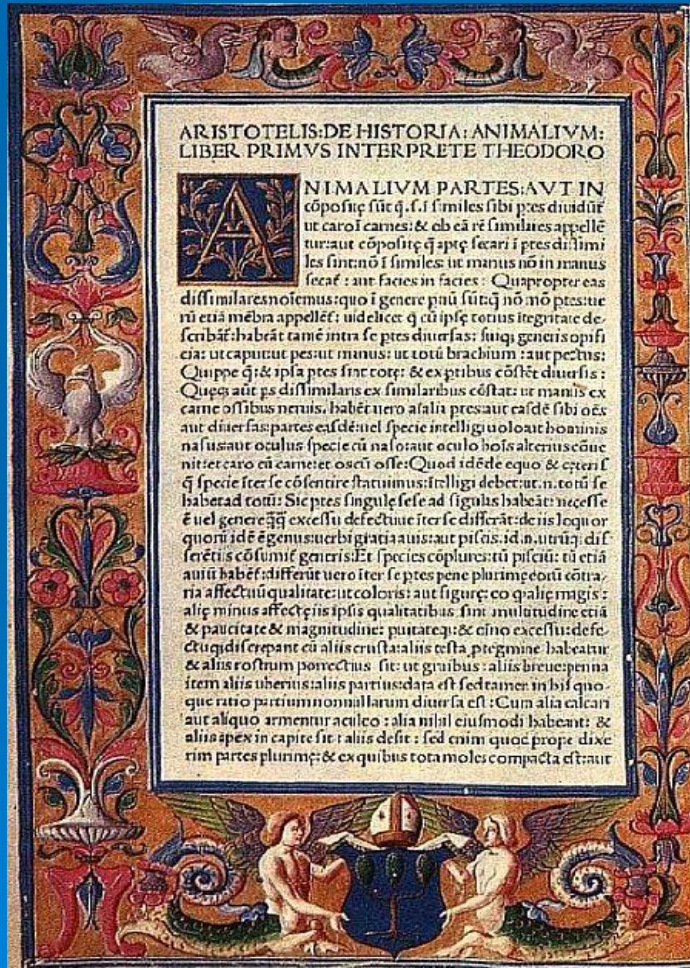 ARISTOTELIS:DE HISTORIA: ANIMALIVM:
LIBER PRIMVS INTERPRETE THEODORO
ANIMALIVM PARTES:AVT IN
cōpositę sūt q̄.s.ī similes sibi ptes dividūt᷑
ut caro ī carnes: & ob eā rē similares appellē
tur:aut cōpositę q̄ aptę secari ī ptes dissimi
les sint:nō ī similes: ut manus nō in manus
secat᷑: aut facies in facies: Quapropter eas
dissimilares noīemus:quo ī genere sūt:q̄ nō mō ptes:ue
rū etiā mēbra appellēt᷑: uidelicet q̄ cū ipsę totius ītegritate de
scribāt᷑:habeāt tamē intra se ptes diuersas: suiq; generis opifi
cia: ut caput:ut pes:ut manus: ut totū brachium: aut pectus:
Quippe q̄:& ipsa ptes sint totę: & ex ptibus cōstēt diuersis:
aut ps dissimilaris ex similaribus cōstat: ut manus ex
carne ossibus neruis. habēt uero aīalia ptes:aut easdē sibi oēs
aut diuersas:partes easdē:uel specie intelligi uolo:aut hominis
nasus:aut oculus specie cū naso:aut oculo hoīs alterius cōue
nit:et caro cū carne:et os cū osse: Quod idē de equo & cęteris
q̄ specie īter se cōsentire statuimus:ītelligi debet:ut.n.totū se
habet ad totū: Sic ptes singulę sese ad sīgulas habeāt: necesse
ē uel genere excessu defectiue īter se differāt:de iis loquor
quorū idē ē genus:uerbi gratia auis:aut piscis.id.n.utrūq; dif
ferētiis cōsumit᷑ generis:Et species cōplures:tū pisciū: tū etiā
auiū habēt᷑:differūt uero īter se ptes pene plurimę eorū cōtra
ria affectuū qualitate:ut coloris: aut figurę: eo q̄ alię magis:
alię minus affectę iis ipsis qualitatibus sint multitudine etiā
& paucitate & magnitudine: & excessu: defe
ctuq; discrepant cū aliis crusta:aliis testa, ptegmine habeatur
& aliis rostrum porrectius sit: ut gruibus: aliis breue:penna
item aliis uberius:aliis partius:data est sed tamen in his quo-
que ratio partium nonnullarum diuersa est: Cum alia calcari
aut aliquo armentur aculeo: alia nihil eiusmodi habeant: &
aliis apex in capite sit: aliis desit: sed enim quoē prope dixe
rim partes plurimę:& ex quibus tota moles compacta est:aut